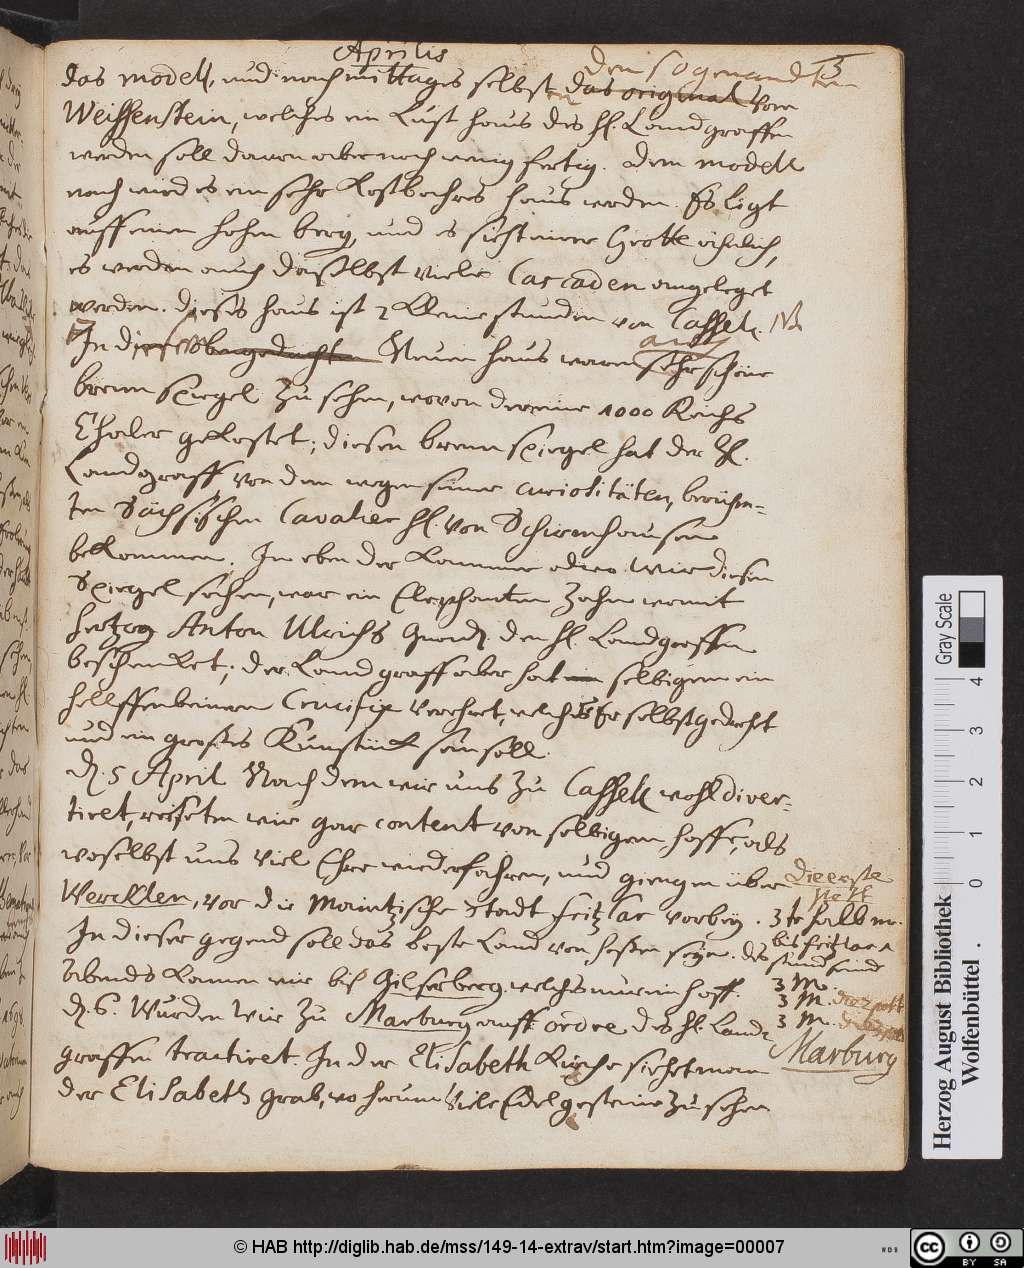 Aprilis
das modell, und nachmittages selbsten das original vom den sogenandten
Weissenstein, welches ein Lust haus des H. Landgraffen
werden soll davon aber noch wenig fertig. Dem modell
nach wird es ein sehr kostbahres haus werden. Es ligt
auff einen hohen berg, und es siehet einer Grotte ähnlich,
es werden auch daselbst viele Cascaden angeleget
werden. dieses haus ist 2 kleine stunden von Cassell. NB
In diesen obengedachten Neuen haus waren auch sehr schöne
brenn spiegel zu sehen, wovon der eine 1000 Reichs
Thaler gekostet; diesen brenn spiegel hat der H.
Landgraff von dem wegen seiner curiositäten, berühm=
ten Sächsischen Cavalier H. von Schirnhausen
bekommen. In eben der Kammer wir diesen
Spiegel sahen, war ein Elephanten Zahn womit
Hertzog Anton Ulrichs den H. Landgraffen
beschencket; der Landgraff aber hat selbigem ein
helffenbeinern Crucifix verehret, welches Er selbst gedreht
und ein großes Kunststück sein soll.
D. 5 April Nach dem wir uns zu Cassell wohl diver=
tiret, reiseten wir gar content von selbigem hoffe, als
woselbst uns viel Ehre wiederfahren, und giengen über
Wercklen, vor die Maintzische Stadt Fritzlar vorbey.
In dieser gegend soll das beste Land von Hessen seyn. des
Abends kamen wir biß Gilserberg welches nur ein hoff.
D. 6. Wurden wir zu Marburg auff ordre des H. Land=
graffen tractiret. In der Elisabeth Kirche siehet man
der Elisabeth grab, wo herum viele Edelgesteine zu sehen
die erste
Post
3te halb m.
bis Fritzlar
sind
3 M.
3 M. die 2 post
3 M. die 3 post
Marburg
Herzog August Bibliothek
Wolfenbüttel
Gray Scale
0 1 2 3 4
© HAB http://diglib.hab.de/mss/149-14-extrav/start.htm?image=00007
WDB
cc BY SA